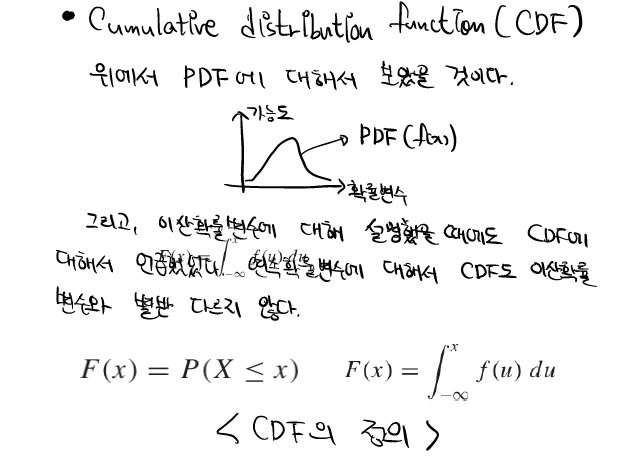 • Cumulative distribution function (CDF)
위에서 PDF에 대해서 보았을 것이다.
가능도
PDF (f(x))
확률변수
그리고, 이산확률변수에 대해 설명했을 때에도 CDF에
대해서 언급했었다. 연속확률변수에 대해서 CDF도 이산확률
변수와 별반 다르지 않다.
F(x) = P(X ≤ x) F(x) = ∫_{-∞}^{x} f(u) du
< CDF의 정의 >